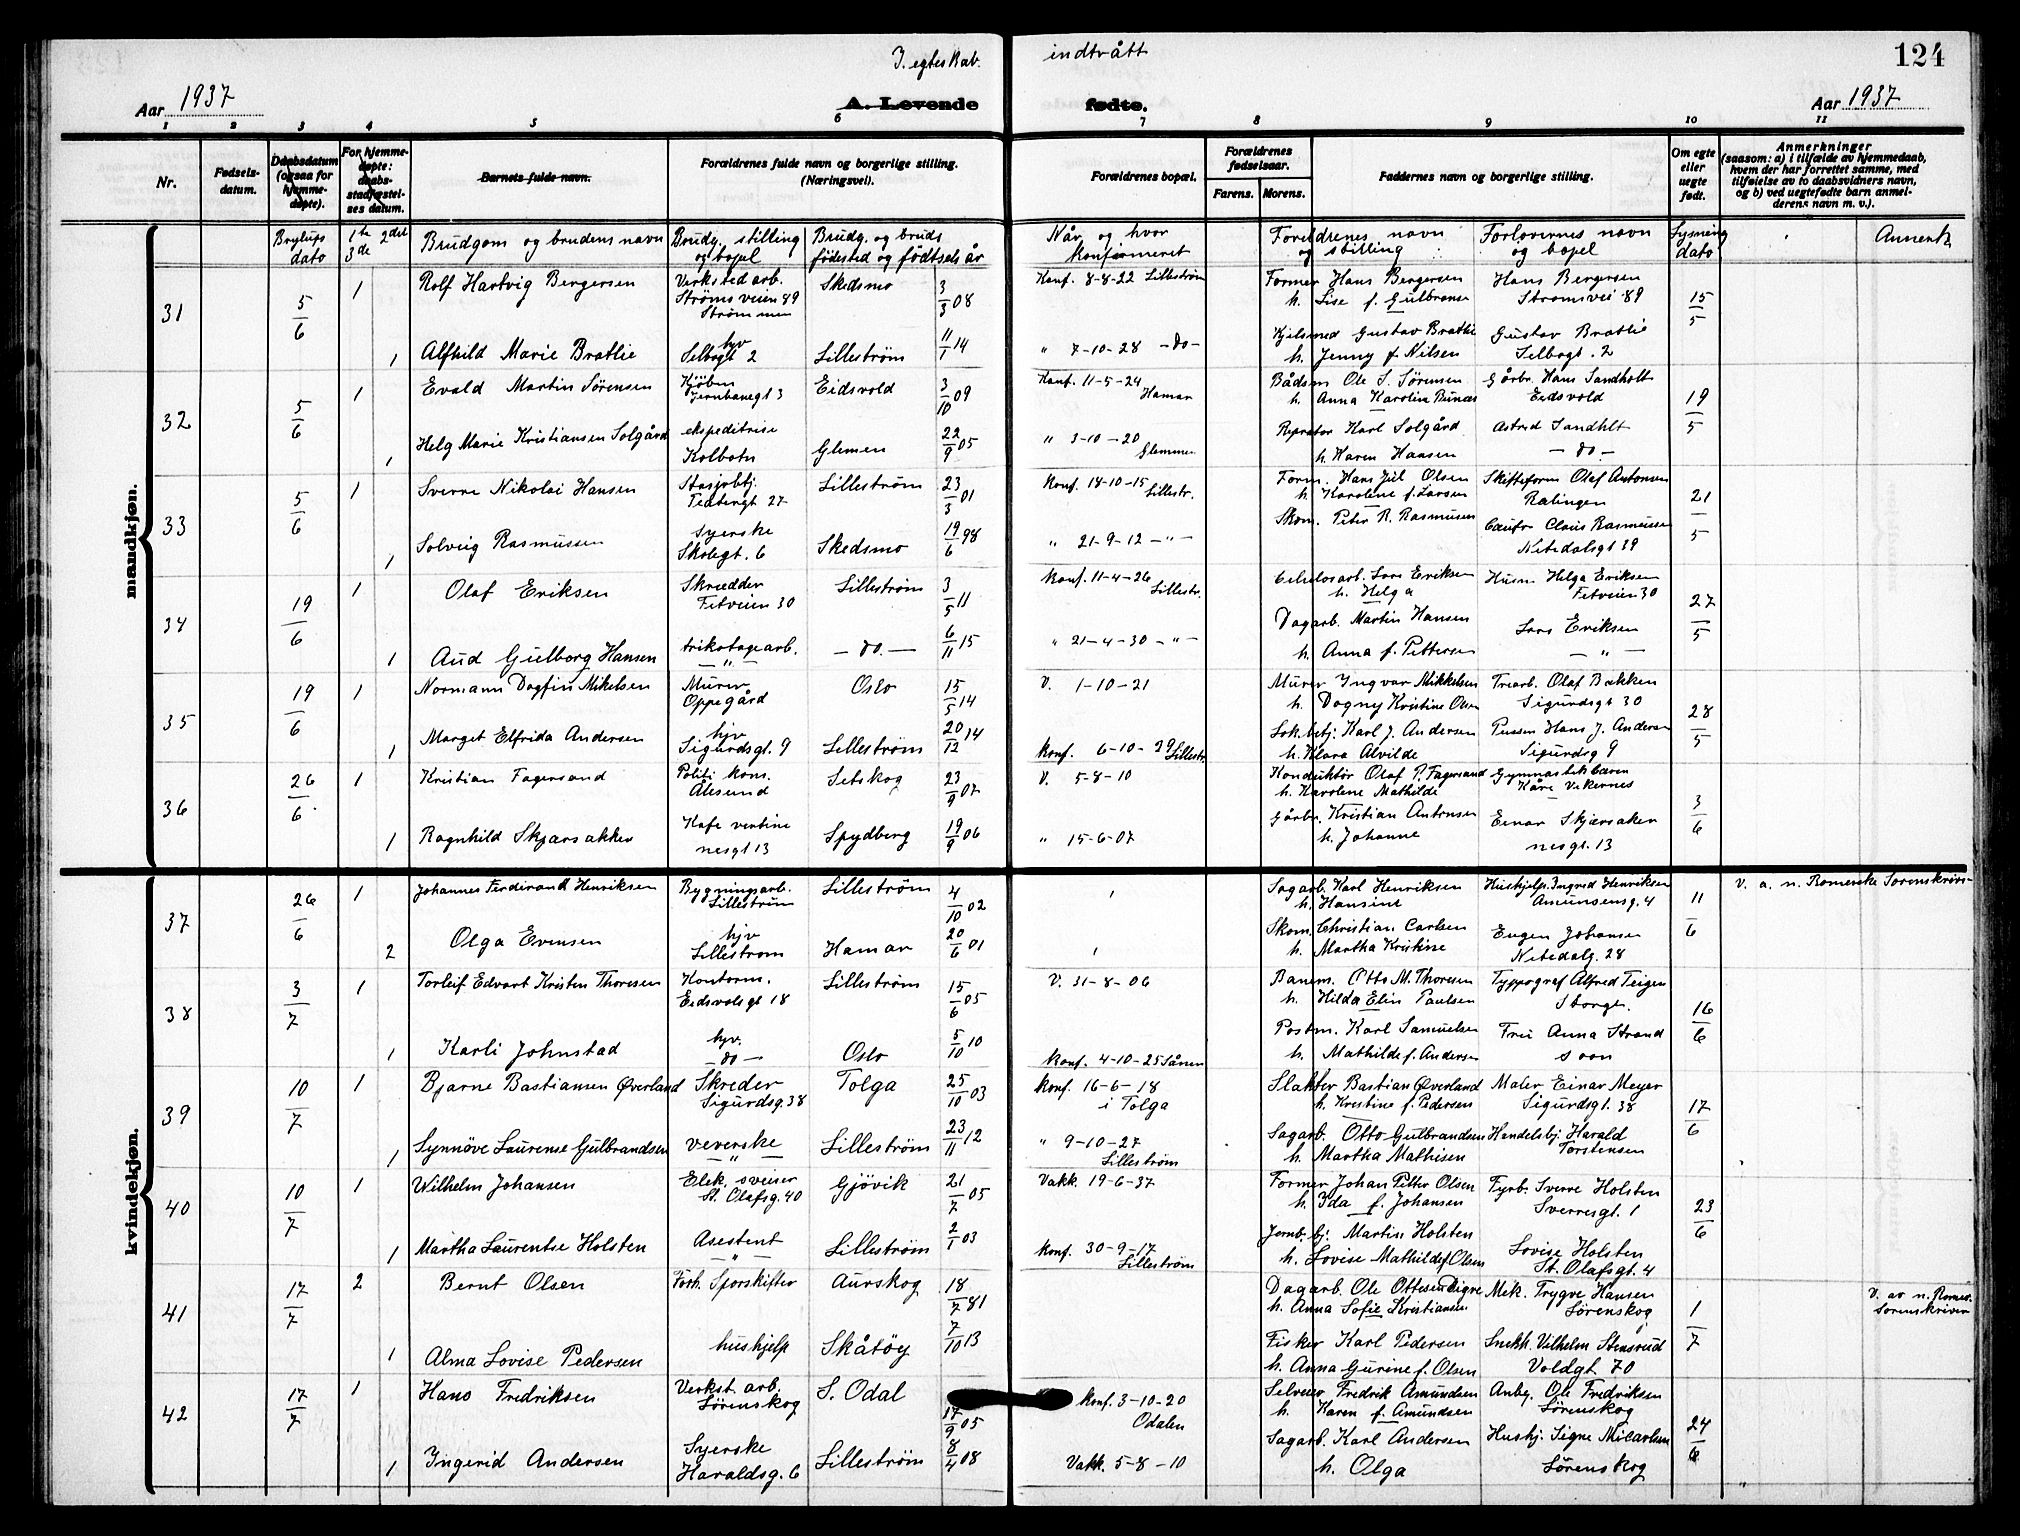 I. egteskab. indtrått
124
Aar 1937
A. Levende fødte.
Aar 1937
1 2 3 4 5 6 7 8 9 10 11
Nr.
Fødsels-
datum.
Daabsdatum
(ogsaa for
hjemme-
døpte).
For hjemme-
døpte:
daabs-
stadfæstel-
ses datum.
Barnets fulde navn.
Forældrenes fulde navn og borgerlige stilling.
(Næringsvei).
Forældrenes bopæl.
Forældrenes
fødselsaar.
Farens. Morens.
Faddernes navn og borgerlige stilling.
Om egte
eller
uegte
født.
Anmerkninger
(saasom: a) i tilfælde av hjemmedaab,
hvem der har forrettet samme, med
tilføielse av to daabsvidners navn,
og b) ved uegtefødte barn anmel-
derens navn m. v.).
mandkjøn.
kvindekjøn.
Brylups
dato
1te 2det
3de
Brudgom og brudens navn
Brudg. stilling
og bopel
Brudg. og bruds
fødested og fødtsels år
Når og hvor
konfirmeret
Foreldrenes navn
og stilling
Forlovernes navn
og bopel
Lysning
dato
Annerk
31 5/6 1 Rolf Hartvig Bergersen Verksted arb. Skedsmo 3/3 08 Konf. 8-8-22 Lillestrøm Former Hans Bergersen Hans Bergersen 15/5
Strømsveien 89 h. Lise f. Gulbranse Strømsvei 89
Strømmen
1 Alfhild Marie Bratlie hjv Lillestrøm 11/1 14 " 7-10-28 -do- Kjelsmed Gustav Bratlie Gustav Bratlie
Selbogt 2 h. Jenny f. Nilsen Selbogt. 2
32 5/6 1 Evald Martin Sørensen Kjøbm Eidsvold 3/10 09 Konf. 11-5-24 Bådsm Ole S. Sørensen Gårbr. Hans Sandholt 19/5
Jernbanegt 3 Hamar h. Anna Karoline Bunæs Eidsvold
1 Helg Marie Kristiansen Solgård ekspeditrise Glemen 22/9 05 " 3-10-20 Reprator Karl Solgård Astrid Sandhlt
Kolbotn Glemmen h. Karen Haasen -do-
33 5/6 1 Sverre Nikolai Hansen Lillestrøm 23/3 01 Konf. 18-10-15 Lillestr. Form. Hans Jul Olsen Skifteform Olaf Antonsen 21/5
27 h. Karolene f. Larsen Rælingen
1 Solveig Rasmussen Syerske Skedsmo 19/6 98 " 21-9-12 -"- Skom. Peter R. Rasmussen Claus Rasmussen
Skolegt. 6 Nitedalsgt 39
34 19/6 1 Olaf Eriksen Skrædder Lillestrøm 3/5 11 Konf. 11-4-26 Lars Eriksen Husm Helga Eriksen 27/5
Fetveien 30 Lillestr. h. Helga Fetveien 30
1 Aud Gulborg Hansen trikotagearb. -do.- 6/11 15 " 21-4-30 -"- Dagarb. Martin Hansen Lars Eriksen
-"- h. Anna f. Pettersen -"-
35 19/6 1 Normann Dagfin Mikelsen Murer Oslo 15/5 14 V. 1-10-21 Murer Ingvar Mikkelsen Trearb. Olaf Bakken 28/5
Oppegård h. Dagny Kristine Olsen Sigurdsgt 30
1 Marget Elfrida Andersen hjv Lillestrøm 20/12 14 Konf. 6-10-29 Lillestr Lok.betj. Karl J. Andersen Hans J. Andersen
Sigurdsgt. 9 h. Klara Alvilde Sigurdsg 9
36 26/6 1 Kristian Fagersand Politi kons. Setskog 23/9 07 V. 5-8-10 Konduktør Olaf P. Fagersand 3/6
Ålesund h. Karolene Mathilde Kåre Vekernes
1 Ragnhild Skjørsakker Kafe vertine Spydberg 19/9 06 " 15-6-07 Gårbr. Kristian Antonsen Einar Skjærsaken
nesgt 13 h. Johanne nesgt. 13
37 26/6 1 Johannes Ferdinand Henriksen Bygningsarb. Lillestrøm 4/10 02 Sagarb. Karl Henriksen Hushjelp. Ingrid Henriksen 11/6 V. a. n. Romerike Sorenskriv-
Lillestrøm h. Hansine Amunsensg. 4
2 Olga Evensen hjv Hamar 20/6 01 Skom. Christian Carlsen Eugen Johansen
Lillestrøm h. Martha Kristine Nitedalg. 28
38 3/7 1 Torleif Edvart Kristen Thoresen Kontorm. Lillestrøm 15/6 05 V. 31-8-06 Banem. Otto M. Thoresen Typpograf Alfred Teigen 16/6
Eidsvolsgt 18 h. Hilda Elin Paulsen
1 Karli Johnstad hjv. Oslo 5/10 10 Konf. 4-10-25 Postm. Karl Samuelsen Fru Anna Strand
-do- h. Mathilde f. Andersen
39 10/7 1 Bjarne Bastiansen Øverland Skreder Tolga 25/10 03 Konf. 16-6-18 Slakter Bastian Øverland Maler Einar Meyer 17/6
Sigurdsg. 38 i Tolga h. Kristine f. Pedersen Sigurdsgt. 38
1 Synnöve Laurense Gulbrandsen veverske Lillestrøm 23/11 12 " 9-10-27 Sagarb. Otto Gulbrandsen Hendelsbj. Harald
-"- Lillestrøm h. Martha Mathisen Torstensen
40 10/7 1 Wilhelm Johansen Elek. sveiser Gjövik 21/7 05 Vakk. 19-6-37 Former Johan Petter Olsen Fyrb. Sverre Holsten 23/6
St. Olafsg. 40 h. Ida f. Johansen Sverresgt. 1
1 Martha Laurentse Holsten Asestent Lillestrøm 2/1 03 Konf. 30-9-17 Jernb. bj. Martin Holsten Lovise Holsten
-"- Lillestrøm h. Lovise Mathilde f Olsen St. Olafsgt. 4
41 17/7 2 Bernt Olsen Forh. Sporskifter Aurskog 18/7 81 Dagarb. Ole Ottesen Digre Mek. Trygve Hansen 1/7 V. av n. Romer.
h. Anna Sofie Kristiansen Lørenskog Sorenskriver
1 Alma Lovise Pedersen hushjelp Skåtöy 7/10 13 Fisker Karl Pedersen Snekk. Vilhelm Stensrud
h. Anna Gurine f. Olsen Voldgt 70
42 17/7 1 Hans Fredriksen Verkst. arb. S. Odal 17/9 05 Konf. 3-10-20 Selveier Fredrik Amundsen Anbg. Ole Fredriksen 24/6
Lørenskog Odalen h. Karen f. Amundsen Lørenskog
1 Ingerid Andersen Syerske Lillestrøm 8/4 08 Vakk. 5-8-10 Sagarb. Karl Andersen Hushj. Signe Micarlsen
Haraldsg. 6 h. Olga Lørenskog